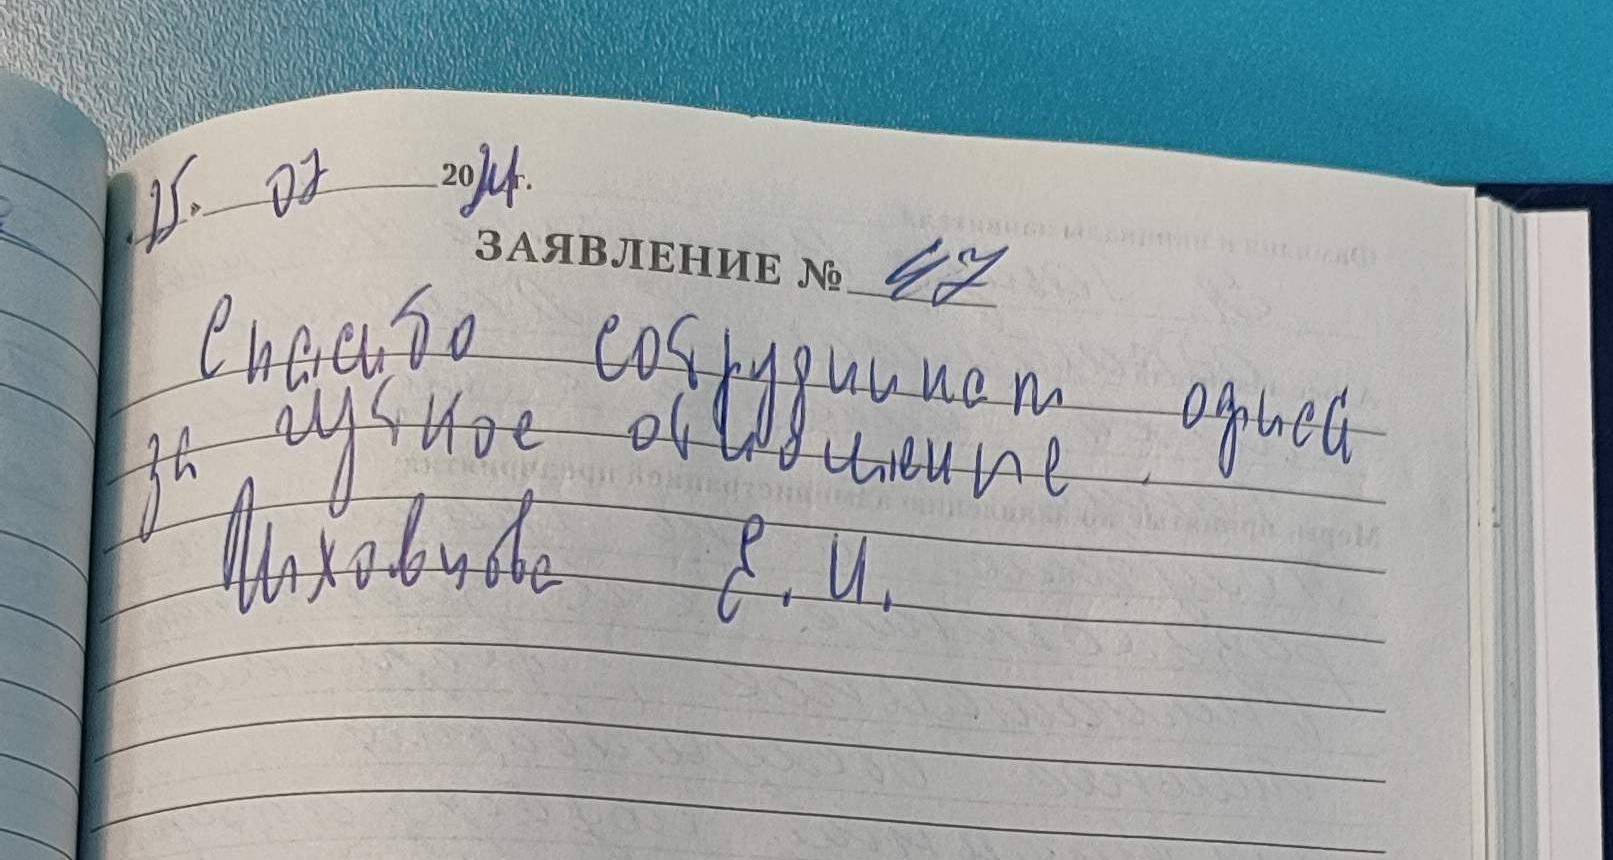 25. 07 2024г.
ЗАЯВЛЕНИЕ № 47
Спасибо сотрудникам офиса
за чуткое отношение.
Е. И.